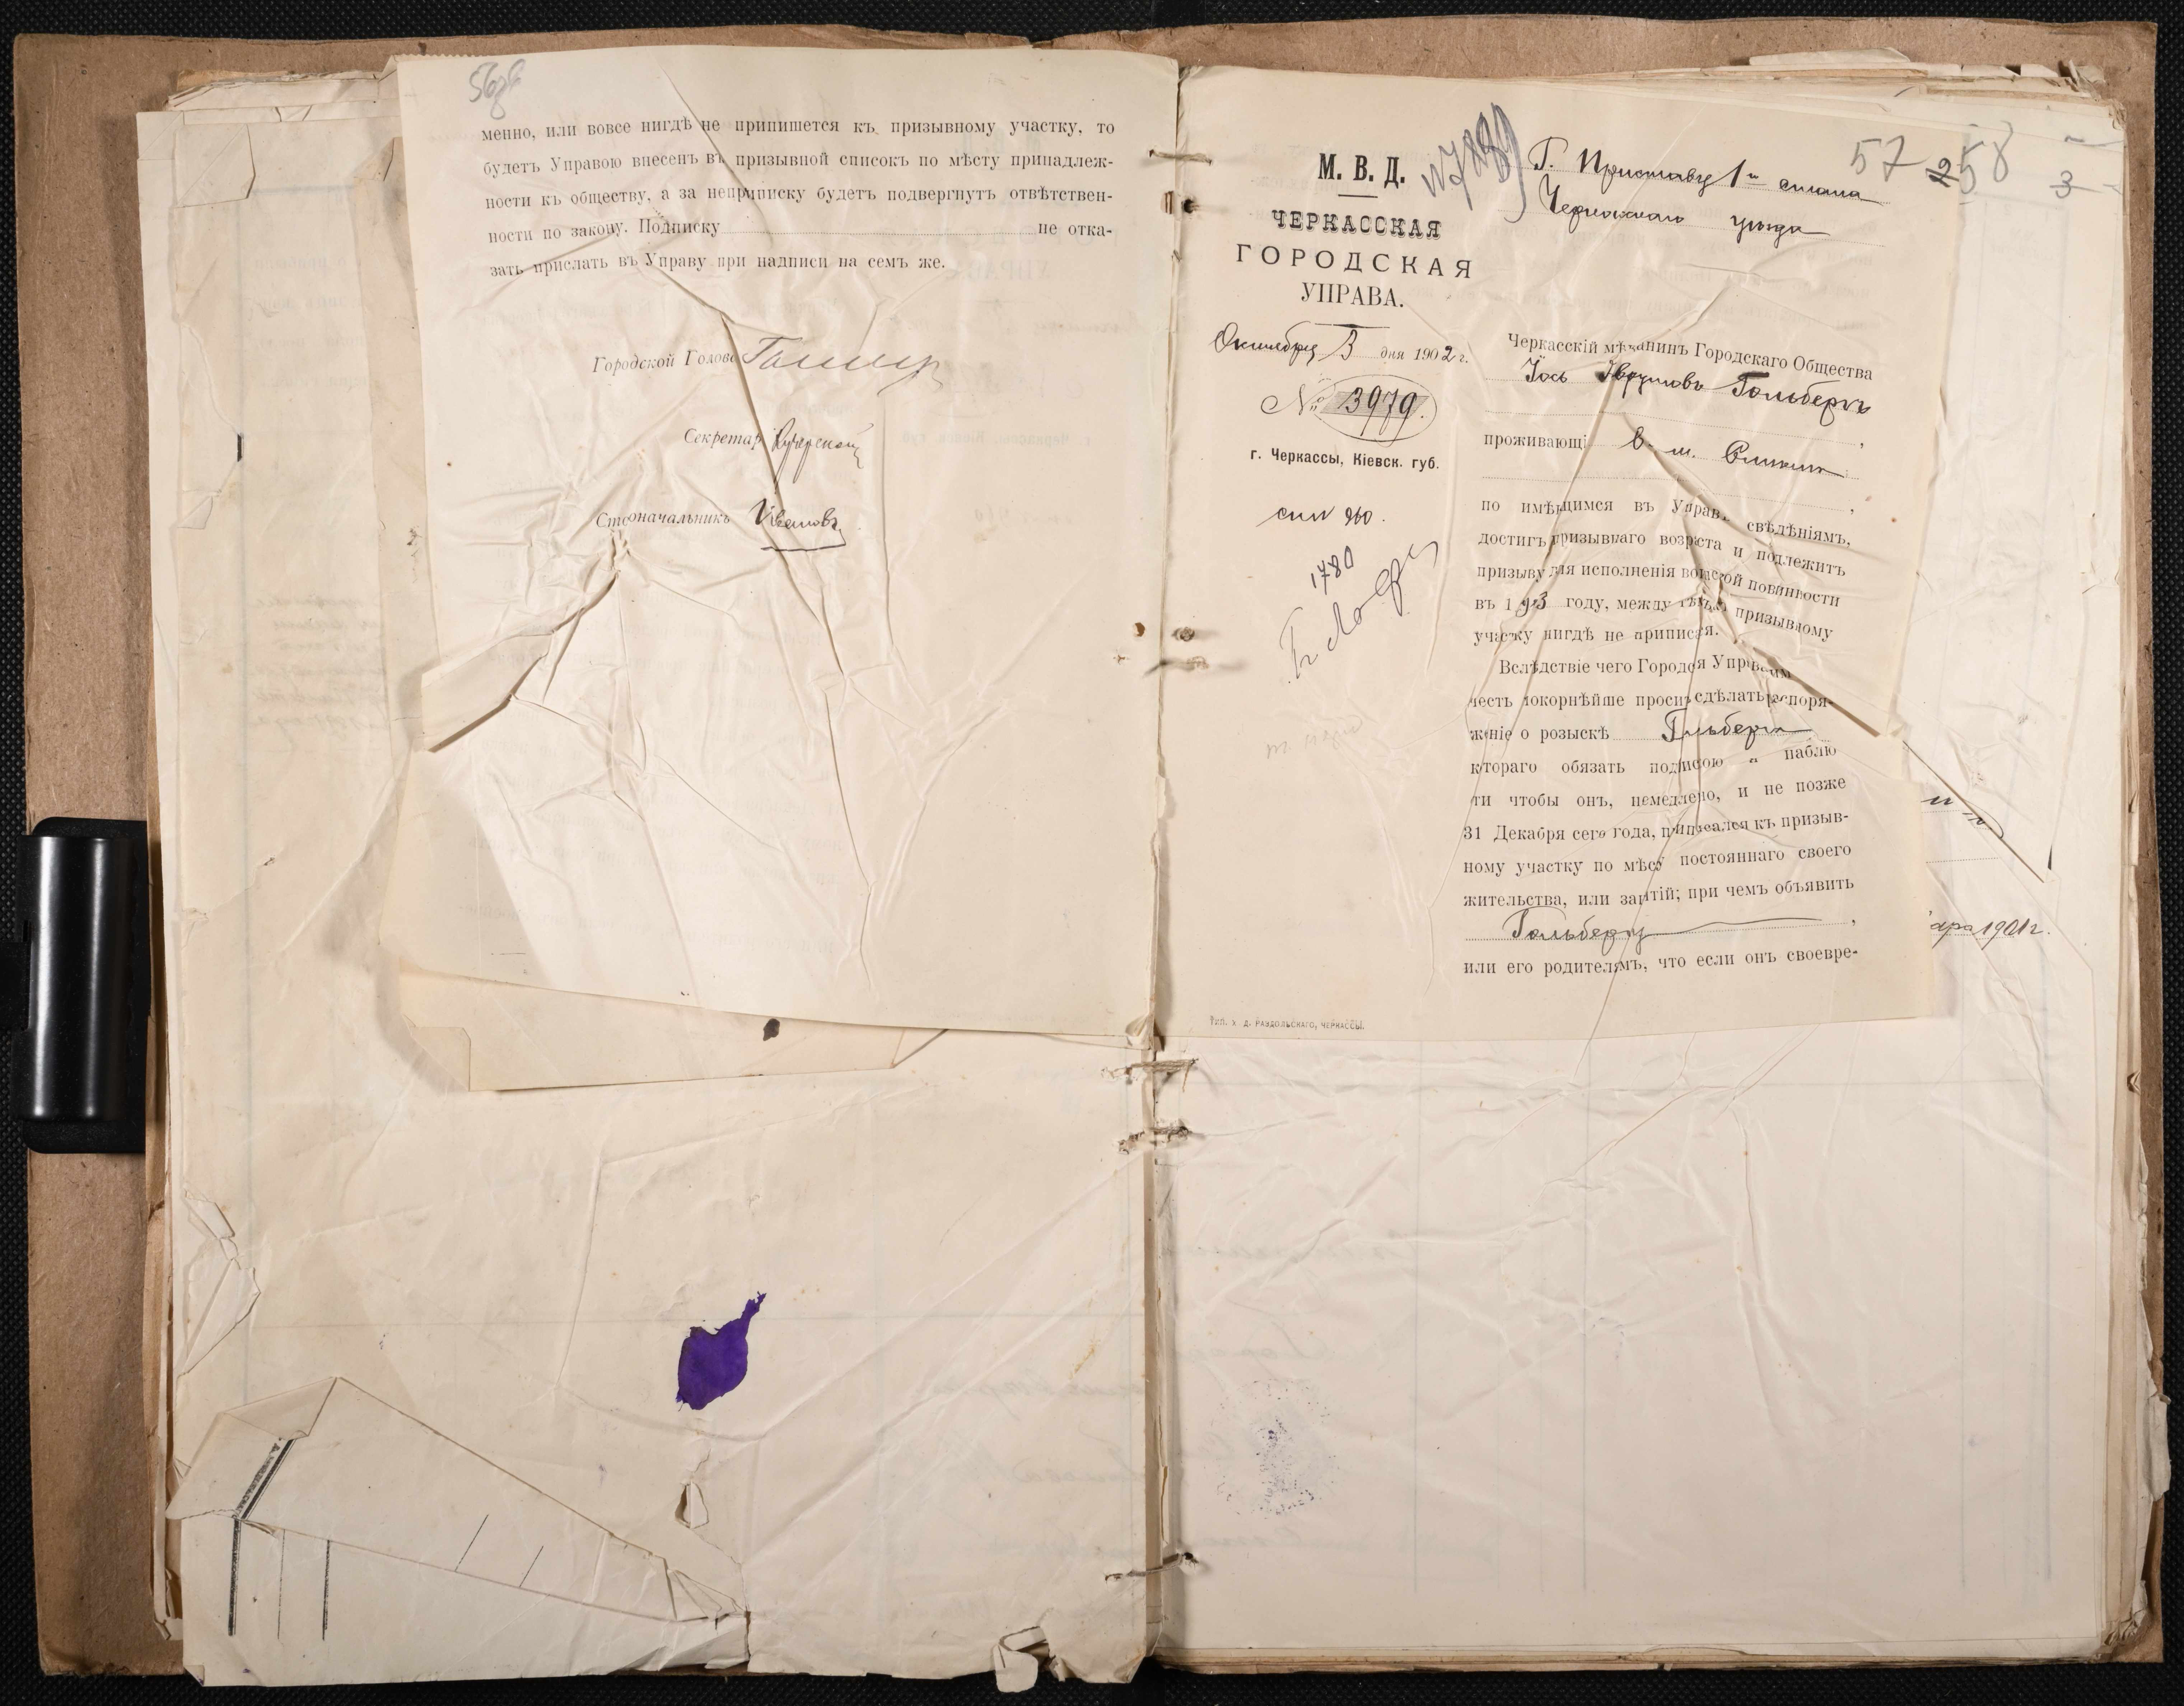 менно, или вовсе нигдѣ не припишется къ призывному участку, то
будетъ Управою внесенъ въ призывной списокъ по мѣсту принадлеж-
ности къ обществу, а за неприписку будетъ подвергнутъ отвѣтствен-
ности по закону. Подписку не отка-
зать прислать въ Управу при надписи на семъ же.
Городской Голова
Секретарь
Столоначальникъ Ивановъ
М. В. Д.
ЧЕРКАССКАЯ
ГОРОДСКАЯ
УПРАВА.
Октября 3 дня 1902 г.
№ 3979.
г. Черкассы, Кіевск. губ.
1780
57
58
3
Г. Приставу 1 стана
Черкасскаго уѣзда
Черкасскій мѣщанинъ Городскаго Общества
Іось Гольбергъ
проживающі в м.
по имѣющимся въ Управѣ свѣдѣніямъ,
достигъ призывнаго возраста и подлежитъ
призыву для исполненія воинской повинности
въ 1903 году, между тѣмъ призывному
участку нигдѣ не приписан.
Вслѣдствіе чего Городская Управа имѣ
честь покорнѣйше просить сдѣлать распоря-
женіе о розыскѣ Гольберга
котораго обязать подпискою и наблю
ти чтобы онъ, немедленно, и не позже
31 Декабря сего года, приписался къ призыв-
ному участку по мѣсту постояннаго своего
жительства, или занятій; при чемъ объявить
Гольбергу,
или его родителямъ, что если онъ своевре-
ТИП. Х. Д. РАЗДОЛЬСКАГО, ЧЕРКАССЫ.
1901 г.